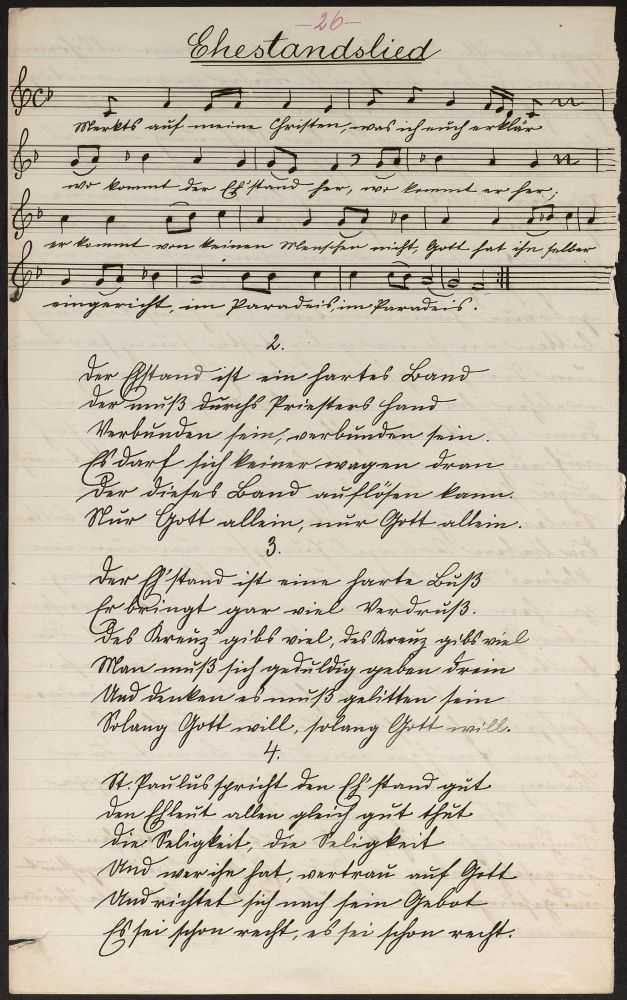 -26-
Ehestandslied
Merkts auf meine Christen, was ich euch erklär
wo kommt der Eh'stand her, wo kommt er her;
er kommt von keinen Menschen nicht, Gott hat ihn selber
eingericht, im Paradeis, im Paradeis.
2.
Der Ehstand ist ein hartes Band
Der muß durchs Priesters Hand
Verbunden sein, verbunden sein.
Es darf sich keiner wagen dran
Der dieses Band auflösen kann.
Nur Gott allein, nur Gott allein.
3.
Der Eh'stand ist eine harte Buß
Er bringt gar viel Verdruß.
Des Kreuz' gibs viel, des Kreuz gibs viel
Man muß sich geduldig geben drein
Und denken es muß gelitten sein
Solang Gott will, solang Gott will.
4.
St. Paulus spricht den Eh'stand gut
Den Ehleut allen gleich gut thut
Die Seligkeit, die Seligkeit
Und wer ihn hat, vertrau auf Gott
Und richtet sich nach sein Gebot
Es sei schon recht, es sei schon recht.